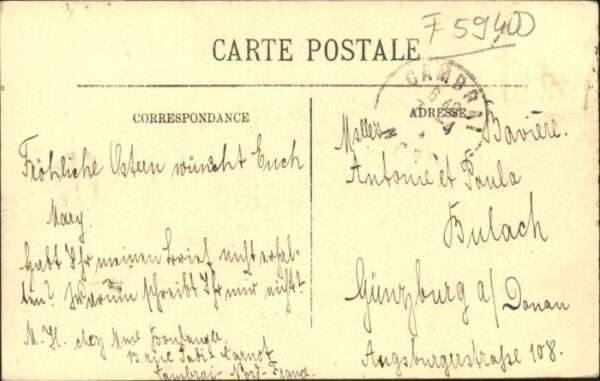 F 5940
CARTE POSTALE
CAMBRAI
CORRESPONDANCE
ADRESSE
Fröhliche Ostern wünscht Euch
Mary.
habt Ihr meinen Brief nicht erhal-
ten? Warum schreibt Ihr mir nicht?
M. H. chez Mme
13 rue Sadi Carnot
Cambrai - Nord - France.
Melles Bavière.
Antonie et Paula
Bulach
Günzburg a/ Donau
Augsburgerstraße 108.